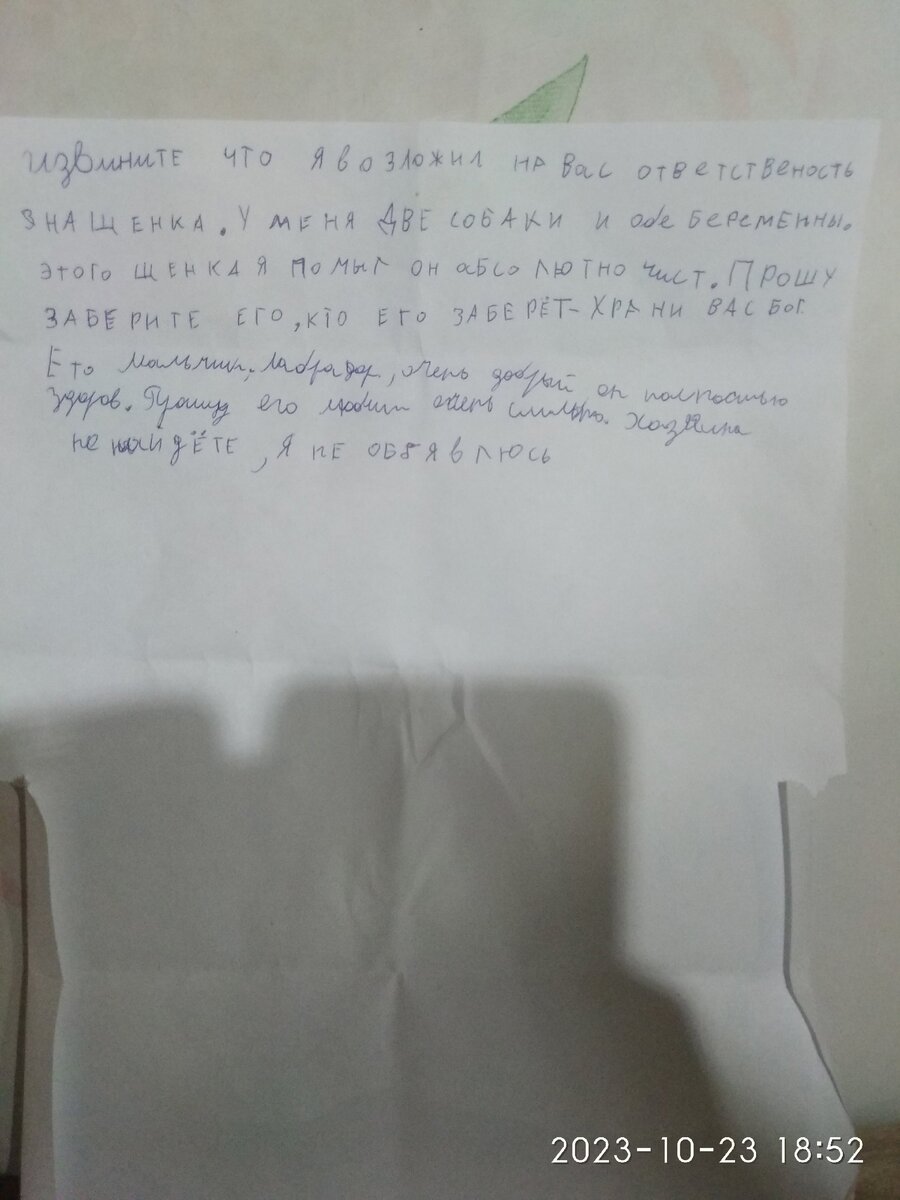 извините что я возложил на вас ответственость
за щенка. у меня две собаки и обе беременны.
этого щенка я помыл он абсолютно чист. Прошу
заберите его, кто его заберёт - храни вас бог.
Ето мальчик, лабрадор, очень добрый он полностью
здоров. Прошу его любит очень сильно. Хозяина
не найдёте, я не обявлюсь
2023-10-23 18:52